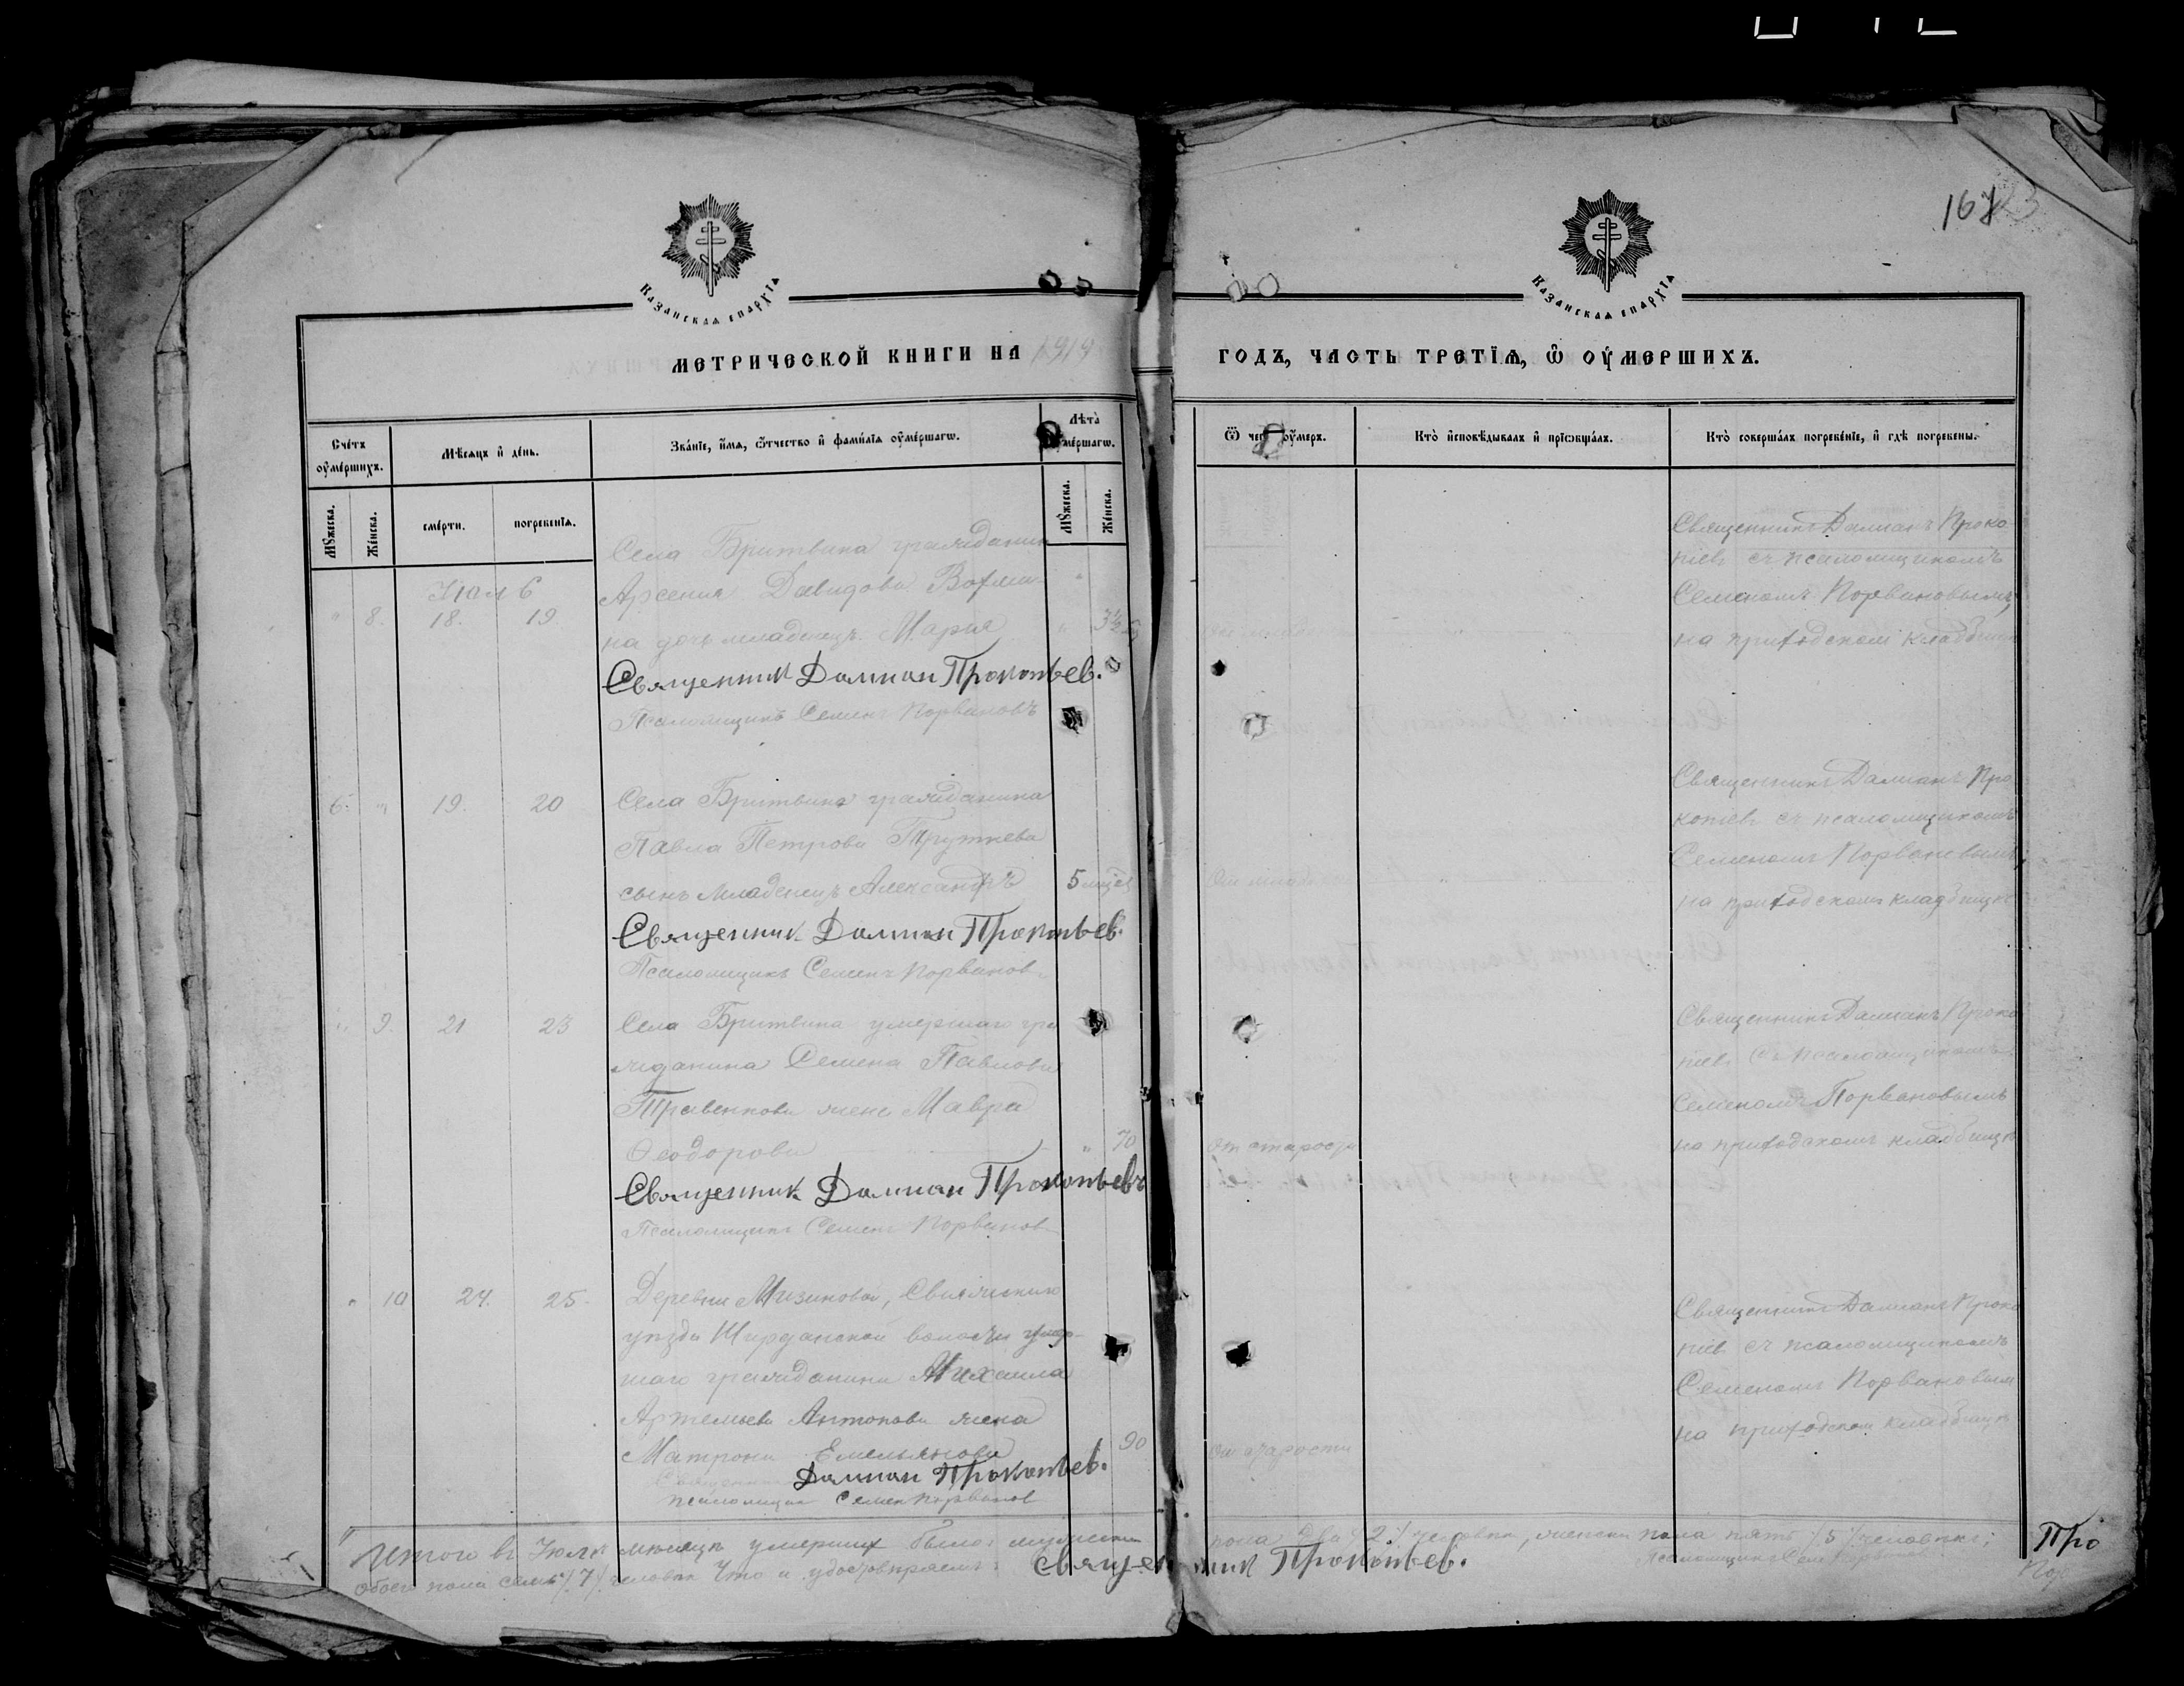 Казанская епархїѧ
Казанская епархїѧ
167
МЕТРИЧЕСКОЙ КНИГИ НА 1919
ГОДЪ, ЧАСТЬ ТРЕТЇѦ, Ѿ ОУМЕРШИХЪ.
Счетъ оумершихъ.
Мѣсяцъ и день.
Званїе, имя, отчество и фамилїя оумершагѡ.
Лѣта оумершагѡ.
Ѿ чего оумеръ.
Кто исповѣдывалъ и прїѡбщалъ.
Кто совершалъ погребенїе, и гдѣ погребены.
Мꙋжеска.
Женска.
смерти.
погребенїя.
Мꙋжеска.
Женска.
Села Бритвина гражданин
Июль
Арсения Давидова
8. 18. 19
на дочь младенецъ Мария
Священник Дамиан Прокопьев.
Псаломщикъ Семенъ Порвановъ
Священникъ Дамианъ Проко
пьевъ съ псаломщикомъ
Семеномъ Порвановымъ,
на приходскомъ кладбищѣ
6. " 19. 20 Села Бритвина гражданина
Павла Петрова
сынъ младенецъ Александръ 5
Священник Дамиан Прокопьев.
Псаломщикъ Семенъ Порванов
Священникъ Дамианъ Про
копьевъ съ псаломщикомъ
Семеномъ Порвановымъ,
на приходскомъ кладбищѣ
" 9. 21 23 Села Бритвина умершаго гра
жданина Семена Павлова
жена Мавра
Ѳеодорова " 70 от старости
Священник Дамиан Прокопьевъ
Псаломщикъ Семенъ Порванов
Священникъ Дамианъ Проко
пьевъ съ псаломщикомъ
Семеномъ Порвановымъ
на приходскомъ кладбищѣ
" 10 24. 25. Деревни Мизиновой, Свияжскаго
уѣзда Ширданской волости умер-
шаго гражданина Михаила
Артемьева Антонова жена
Матрона Емельянова 90 от старости
Священник Дамиан Прокопьев.
псаломщик Семен Порванов
Священникъ Дамианъ Проко
пьевъ съ псаломщикомъ
Семеномъ Порвановым
на приходском кладбищѣ
Итого въ Июлѣ мѣсяцѣ умерших было: мужеска пола два /2/ человѣка, женска пола пять /5/ человѣкъ;
обоего пола семь /7/ человѣк Что и удостовѣряемъ: Священник Прокопьев.
Про